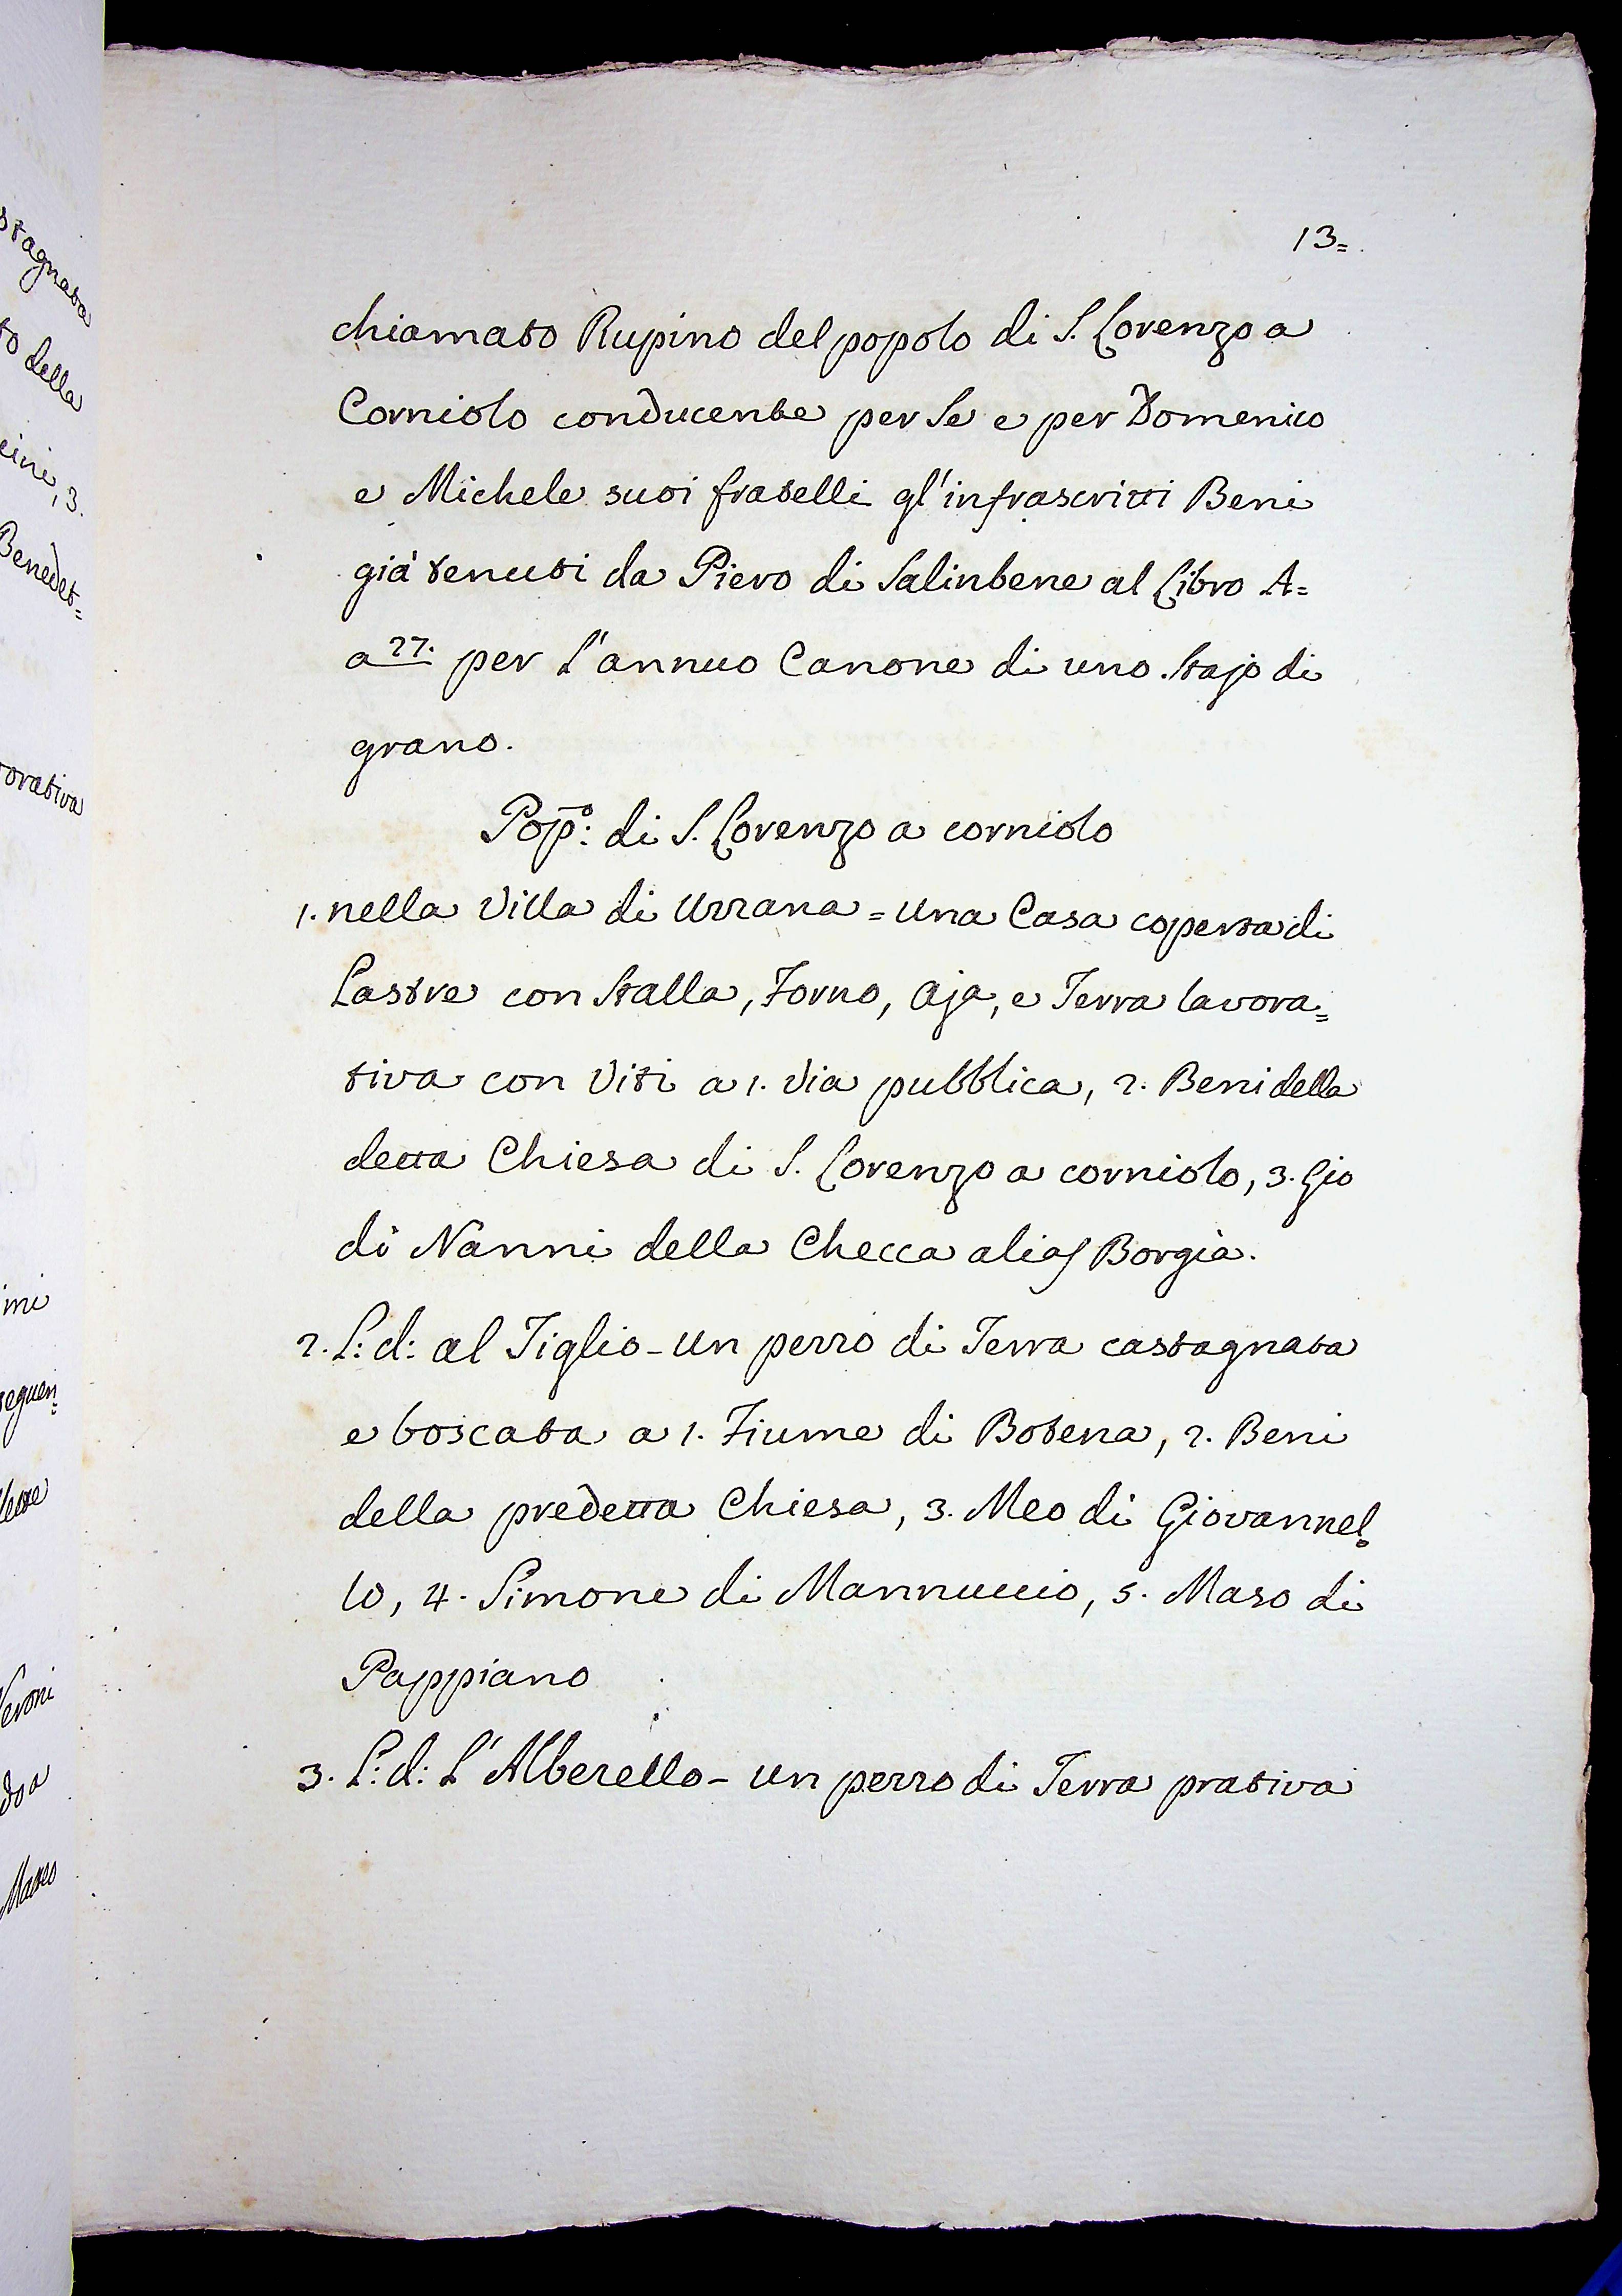 13=
chiamato Rupino del popolo di S. Lorenzo a
Corniolo conducente per Se e per Domenico
e Michele suoi fratelli gl'infrascritti Beni
già tenuti da Piero di Salinbene al Libro A=
a 27. per l'annuo Canone di uno Stajo di
grano.
Pop̄o: di S. Lorenzo a corniolo
1. nella Villa di Uzzana = una Casa coperta di
Lastre con Stalla, Forno, Aja, e Terra lavora=
tiva con Viti a 1. Via pubblica, 2. Beni della
detta Chiesa di S. Lorenzo a corniolo, 3. Gio
di Nanni della Checca alias Borgia.
2. L: d: al Tiglio - un pezzo di Terra castagnata
e boscata a 1. Fiume di Botena, 2. Beni
della predetta Chiesa, 3. Meo di Giovannel=
lo, 4. Simone di Mannuccio, 5. Maso di
Pappiano
3. L: d: L'Alberello - un pezzo di Terra prativa